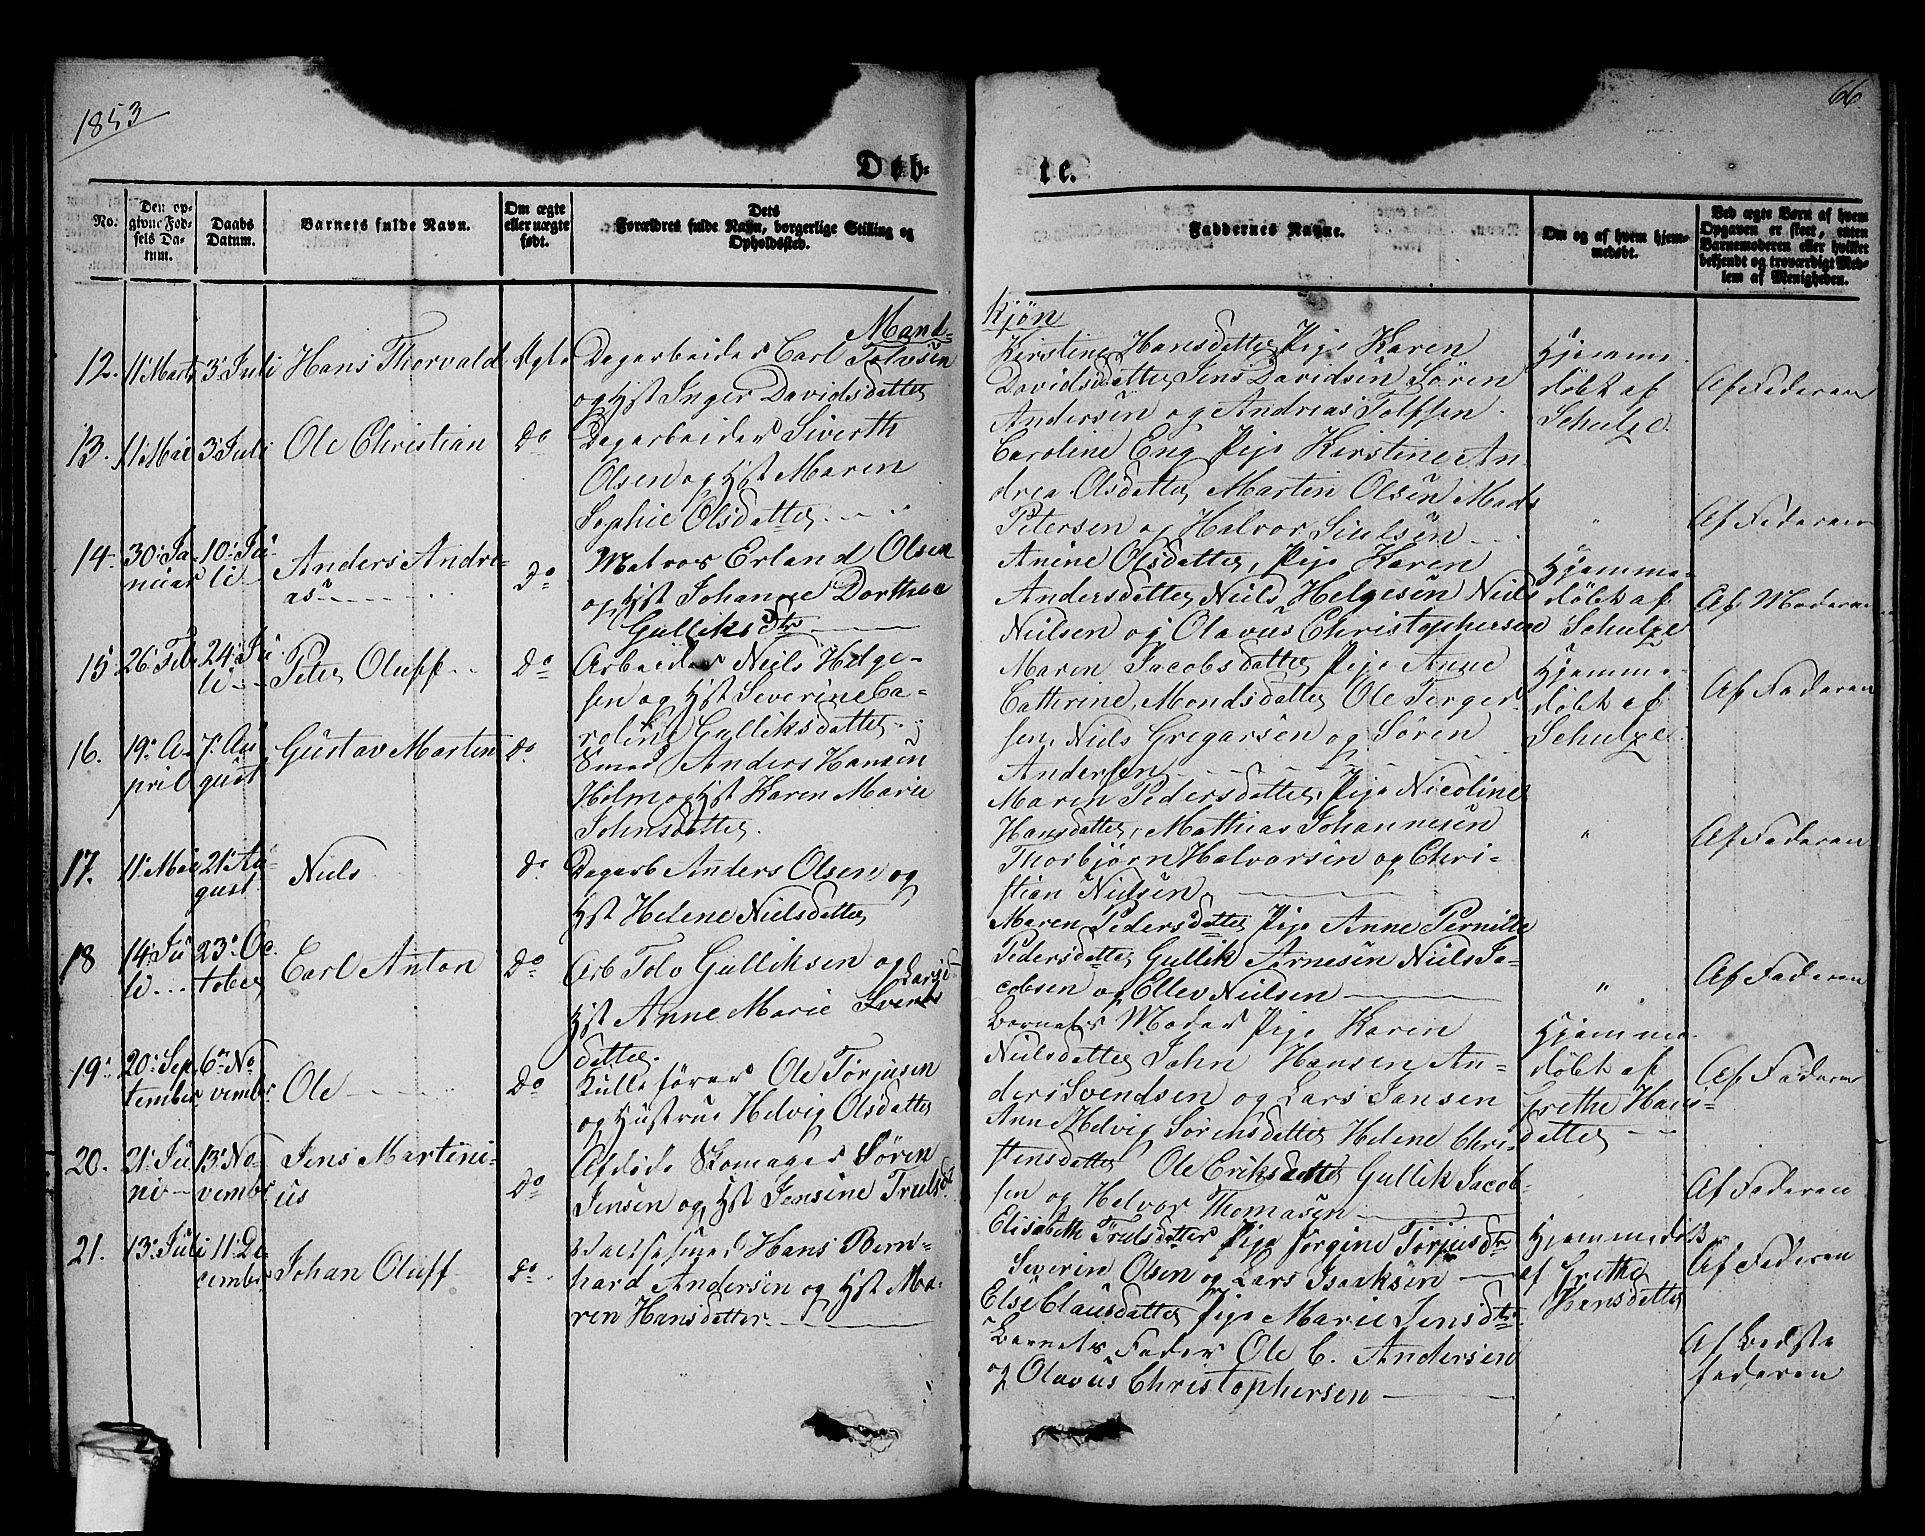 1853
66.
Døb-
te.
No.
Den op-
givne Fød-
sels Da-
tum.
Daabs
Datum.
Barnets fulde Navn.
Om ægte
eller uægte
født.
Dets
Forældres fulde Navn, borgerlige Stilling og
Opholdssted.
Faddernes Navne.
Om og af hvem hjem-
medøbt.
Ved ægte Børn af hvem
Opgaven er skeet, enten
Barnemoderen eller hvilket
bekjendt og troværdigt Med-
lem af Menigheden.
Mand-
kjøn
12. 11 Marts 3 Juli Hans Thorvald Ægte
Dagarbeider Carl Tolvsen
og Hst Inger Davidsdatter
Kirstine Hansdatter Pige Karen
Davidsdatter Jens Davidsen Søren
Andersen og Andreas Tolfsen.
Hjemme-
døbt af
Schulze.
Af Faderen
13. 11 Mai 3 Juli Ole Christian Do
Dagarbeider Siverth
Olsen og Hst Maren
Sophie Olsdatter
Caroline Eng Pige Kirstine An-
drea Olsdatter Martin Olsen Mads
Petersen og Halvor
"
Af Faderen
14. 30 Ja-
nuar
10 Ju-
li
Anders Andre-
as
Do
Matros Erland Olsen
og Hst Johanne Dorthea
Gulliksdtr
Anine Olsdatter, Pige Karen
Andersdatter Niels Helgesen Niels
Nielsen og Olavus Christophersen
Hjemme-
døbt af
Schulze
Af Moderen
15 26 Feb 24 Ju-
li
Peter Oluff Do
Arbeider Niels Helge-
sen og Hst Severine Ca-
roline Gulliksdatter
Maren Jacobsdatter Pige Anne
Cathrine Mondsdatter Ole Terger-
sen, Niels Gregarsen og Søren
Andersen
Hjemme-
døbt af
Schulze
Af Faderen
16. 19 A-
pril
7 Au-
gust
Gustav Martin Do.
Smed Anders Hansen
Holm og Hst Karen Marie
Johnsdatter.
Maren Pedersdatter, Pige Nicoline
Hansdatter, Mathias Johannesen
Thorbjørn Halvorsen og Chri-
stian Nielsen
"
Af Faderen
17. 11 Mai 21 Au-
gust
Niels Do
Dagarb Anders Olsen og
Hst Helene Nielsdatter
Maren Pedersdatter Pige Anne Pernille
Pedersdatter Gullik Arnesen Niels Ja-
cobsen og Ellev Nielsen
"
Af Faderen
18 14 Ju-
li
23 Oc-
tober
Carl Anton Do
Arb Tolv Gulliksen og
Hst Anne Marie Svends
datter.
Barnets Moder Pige Karen
Nielsdatter John Hansen An-
ders Svendsen og Lars Jansen
Hjemme-
døbt af
Grethe Hans-
datter
Af Faderen
19. 20 Sep-
tember
6 No-
vembr.
Ole Do
Kullefører Ole Torjusen
og Hustrue Helvig Olsdatter
Anne Helvig Sørensdatter Helene Chri-
stensdatter Ole Eriksdatter Gullik Jacob-
sen og Helvor Thomasen
Af Faderen
20. 21 Ju-
ni
13 No-
vembr
Jens Martini-
us
Do
Afdøde Skomager Søren
Jensen og Hst Jensine Trulsdt.
Elisabeth Trulsdatter Pige Jørgine Torjusdtr
Severin Olsen og Lars Isaksen
Hjemmedøb
af Grethe
Hansdatter
Af Faderen
21. 13 Juli 11 De-
cember
Johan Oluff Do.
Hans Bern-
hard Andersen og Hst Ma-
ren Hansdatter.
Else Clausdatter Pige Marie Jensdtr
Barnets Fader Ole C. Andersen
og Olavus Christophersen
Af Bedste
faderen